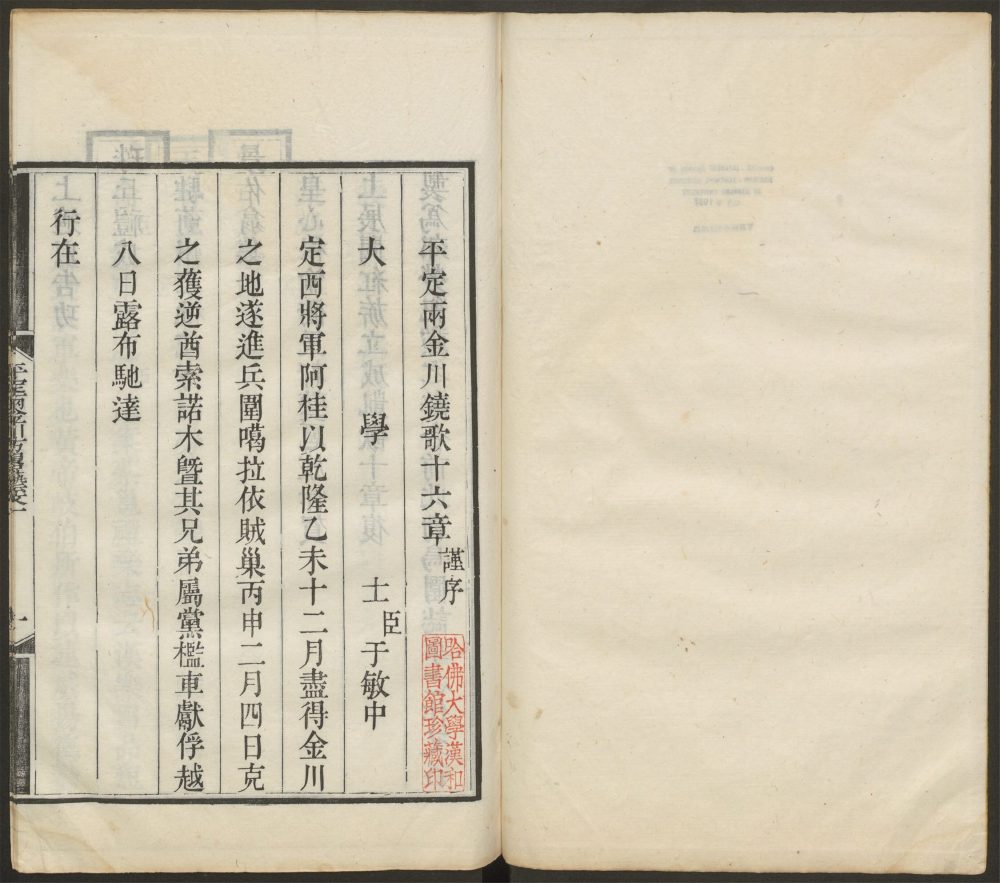 平定兩金川鐃歌十六章 謹序
大學士臣于敏中
定西將軍阿桂以乾隆乙未十二月盡得金川
之地遂進兵圍噶拉依賊巢丙申二月四日克
之獲逆酋索諾木曁其兄弟屬黨檻車獻俘越
八日露布馳達
行在
哈佛大學漢和
圖書館珍藏印
平定兩金川方略
一